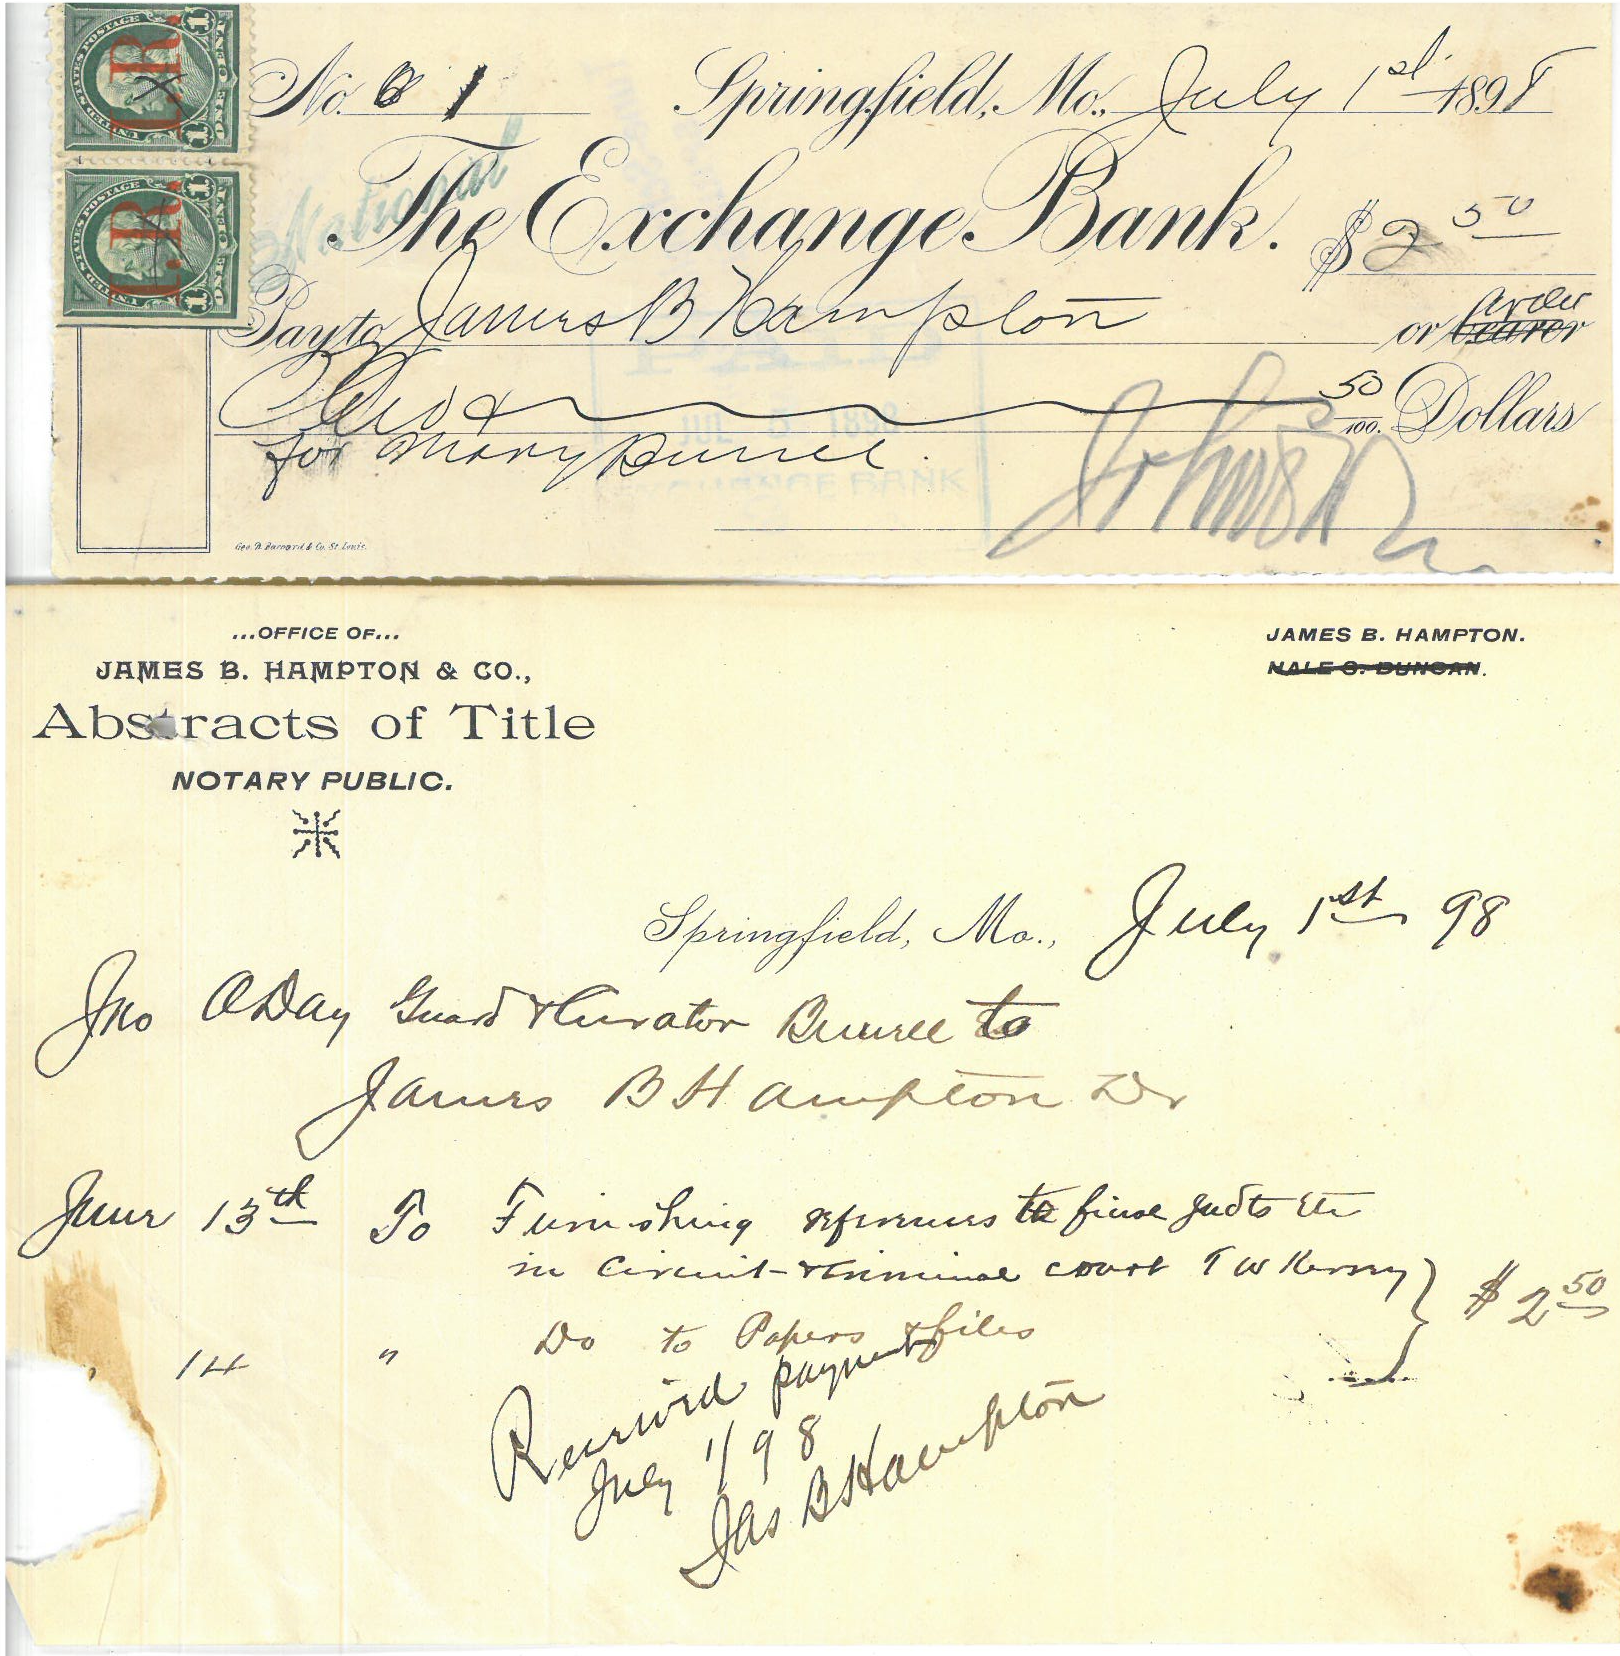 UNITED STATES POSTAGE
I.R.
1 ONE CENT 1
UNITED STATES POSTAGE
I.R.
1 ONE CENT 1
No. 1 Springfield, Mo., July 1st 1898
National
The Exchange Bank. $2 50
Pay to James B Hampton or bearer order
Two & 50/100. Dollars
for Mary Burrell
JUL 5 1898
EXCHANGE BANK
Geo. D. Barnard & Co. St. Louis.
...OFFICE OF...
JAMES B. HAMPTON & CO.,
Abstracts of Title
NOTARY PUBLIC.
JAMES B. HAMPTON.
NALE C. DUNCAN.
Springfield, Mo., July 1st 98
Jno ODay Guard & Curator Burrell to
James B Hampton Dr
June 13th To Furnishing references to final Judts Etc
in Circuit & Criminal court T W Kersey } $2 50
" 14 " Do to Papers & files
Received payment
July 1/98
Jas B Hampton